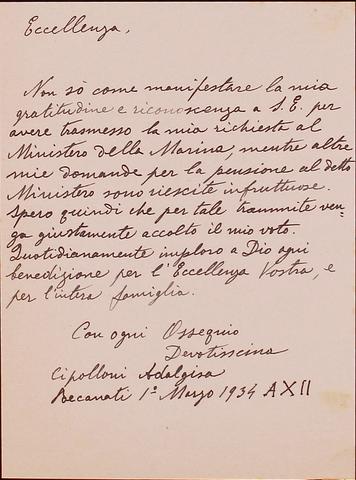 Eccellenza,
Non sò come manifestare la mia
gratitudine e riconoscenza a S.E. per
avere trasmesso la mia richiesta al
Ministero della Marina, mentre altre
mie domande per la pensione al detto
Ministero sono riescite infruttuose.
Spero quindi che per tale trammite ven-
ga giustamente accolto il mio voto.
Quotidianamente imploro a Dio ogni
benedizione per l'Eccellenza Vostra, e
per l'intera famiglia.
Con ogni Ossequio
Devotissima
Cipolloni Adalgisa
Recanati 1º Marzo 1934 A XII